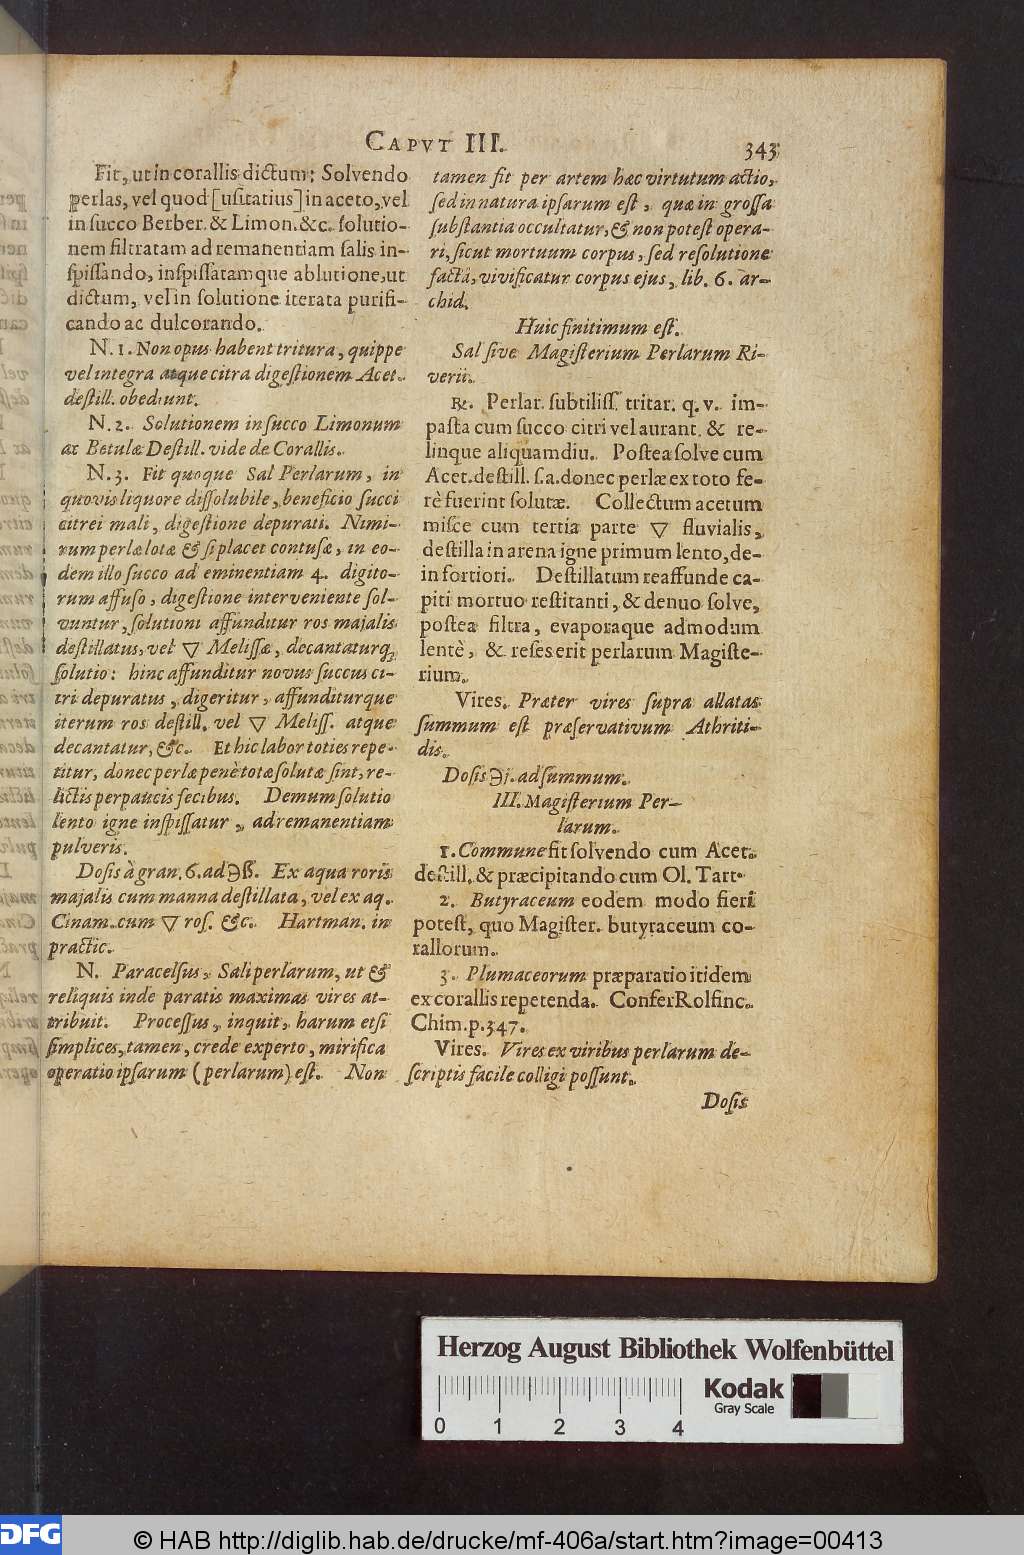 CAPVT III.
343
Fit, ut in corallis dictum: Solvendo
perlas, vel quod [usitatius] in aceto, vel
in succo Berber. & Limon. &c. solutio-
nem filtratam ad remanentiam salis in-
spissando, inspissatamque ablutione, ut
dictum, vel in solutione iterata purifi-
cando ac dulcorando.
N. 1. Non opus habent tritura, quippe
vel integra atque citra digestionem Acet.
destill. obediunt.
N. 2. Solutionem in succo Limonum
ac Betulæ Destill. vide de Corallis.
N. 3. Fit quoque Sal Perlarum, in
quovis liquore dissolubile, beneficio succi
citrei mali, digestione depurati. Nimi-
rum perlæ lotæ & si placet contusæ, in eo-
dem illo succo ad eminentiam 4. digito-
rum affuso, digestione interveniente sol-
vuntur, solutioni affunditur ros majalis
destillatus, vel 🜄 Melissæ, decantaturq;
solutio: hinc affunditur novus succus ci-
tri depuratus, digeritur, affunditurque
iterum ros destill. vel 🜄 Meliss. atque
decantatur, &c. Et hic labor toties repe-
titur, donec perlæ penè totæ solutæ sint, re-
lictis perpaucis fecibus. Demum solutio
lento igne inspissatur, ad remanentiam
pulveris.
Dosis à gran. 6. ad ℈ß. Ex aqua roris
majalis cum manna destillata, vel ex aq.
Cinam. cum 🜄 ros. &c. Hartman. in
practic.
N. Paracelsus, Sali perlarum, ut &
reliquis inde paratis maximas vires at-
tribuit. Processus, inquit, harum etsi
simplices, tamen, crede experto, mirifica
operatio ipsarum (perlarum) est. Non
tamen fit per artem hæc virtutum actio,
sed in natura ipsarum est, quæ in grossa
substantia occultatur, & non potest opera-
ri, sicut mortuum corpus, sed resolutione
factâ, vivificatur corpus ejus, lib. 6. ar-
chid.
Huic finitimum est.
Sal sive Magisterium Perlarum Ri-
verii.
℞. Perlar. subtiliss. tritar. q. v. im-
pasta cum succo citri vel aurant. & re-
linque aliquamdiu. Postea solve cum
Acet. destill. s. a. donec perlæ ex toto fe-
rè fuerint solutæ. Collectum acetum
misce cum tertia parte 🜄 fluvialis,
destilla in arena igne primum lento, de-
in fortiori. Destillatum reaffunde ca-
piti mortuo restitanti, & denuo solve,
postea filtra, evaporaque admodum
lentè, & reses erit perlarum Magiste-
rium.
Vires. Præter vires supra allatas
summum est præservativum Athriti-
dis.
Dosis ℈j. ad summum.
III. Magisterium Per-
larum.
1. Commune fit solvendo cum Acet.
destill. & præcipitando cum Ol. Tart.
2. Butyraceum eodem modo fieri
potest, quo Magister. butyraceum co-
rallorum.
3. Plumaceorum præparatio itidem
ex corallis repetenda. Confer Rolfinc.
Chim. p. 347.
Vires. Vires ex viribus perlarum de-
scriptis facile colligi possunt.
Dosis
Herzog August Bibliothek Wolfenbüttel
0 1 2 3 4
Kodak
Gray Scale
DFG
© HAB http://diglib.hab.de/drucke/mf-406a/start.htm?image=00413